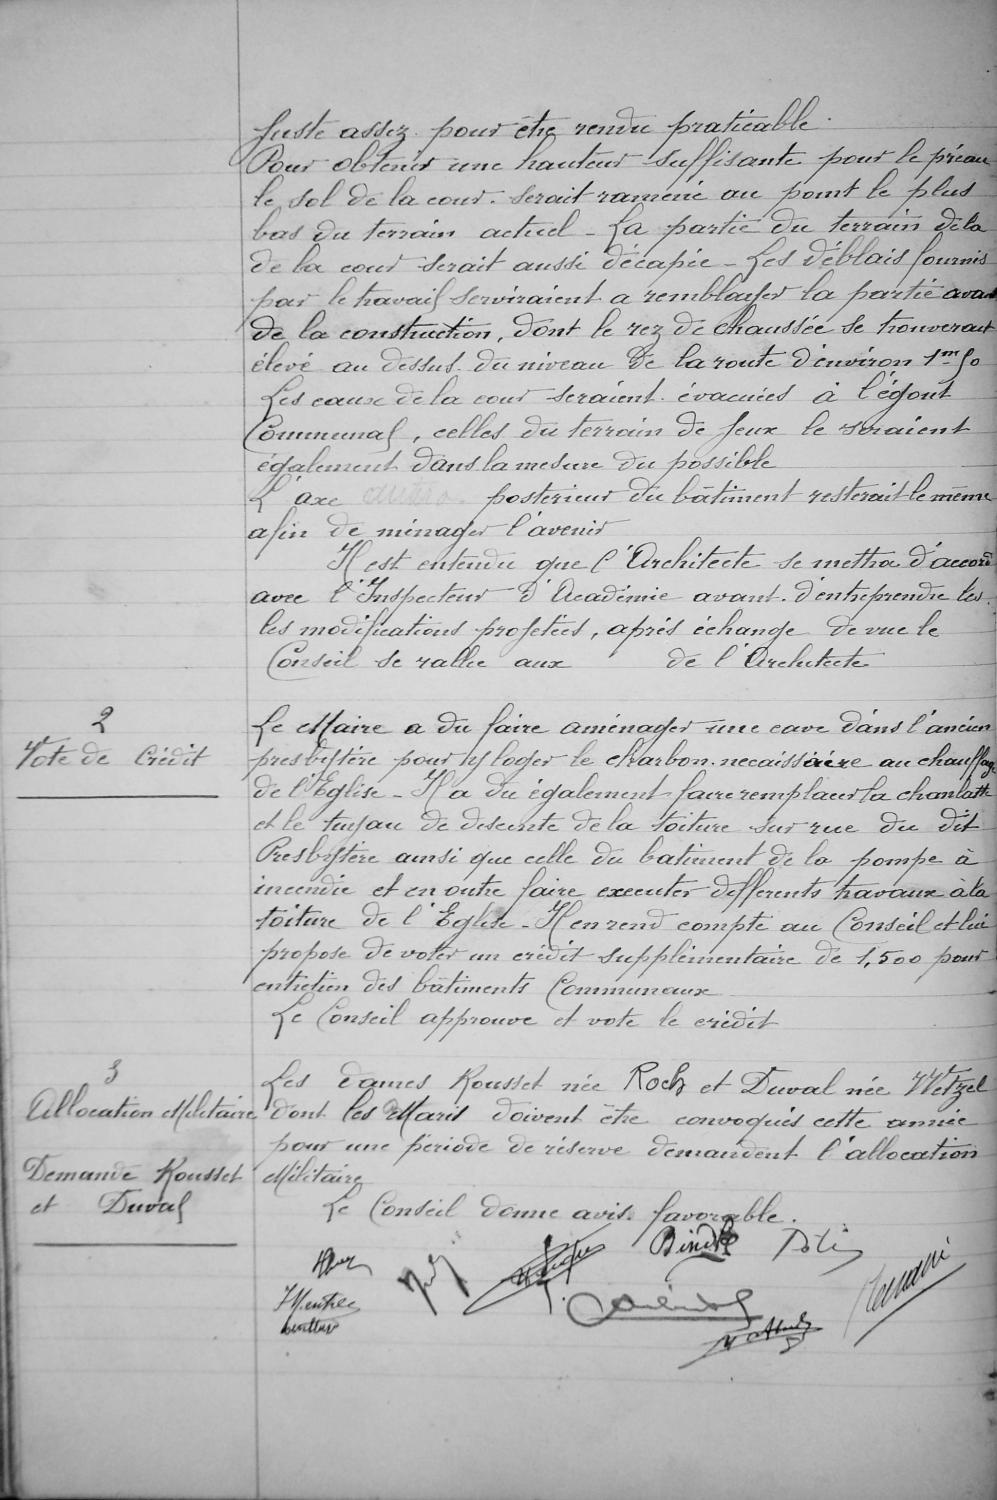 Juste assez pour être rendu praticable.
Pour obtenir une hauteur suffisante pour le préau
le sol de la cour. serait ramené au point le plus
bas du terrain actuel - La partie du terrain delà
de la cour serait aussi décapée - Les déblais fournis
par le travail serviraient a remblayer la partie avant
de la construction, dont le rez de chaussée se trouverait
élevé au dessus du niveau de la route d'environ 1m50
Les eaux de la cour seraient évacuées à l'égout
Communal, celles du terrain de Jeux le seraient
également dans la mesure du possible
L'axe postérieur du bâtiment resterait le même
afin de ménager l'avenir
Il est entendu que l'Architecte se mettra d'accord
avec l'Inspecteur d'Académie avant d'entreprendre les
les modifications projetées, après échange de vue le
Conseil se rallie aux de l'Architecte
2
Vote de Crédit
Le Maire a du faire aménager une cave dans l'ancien
presbytère pour y loger le charbon necaissaire au chauffage
de l'Eglise - Il a du également faire remplacer la chanlatte
et le tuyau de descente de la toiture sur rue du dit
Presbytère ainsi que celle du batiment de la pompe à
incendie et en outre faire executer differents travaux à la
toiture de l'Eglise - Il en rend compte au Conseil et lui
propose de voter un crédit supplémentaire de 1,500 pour
entretien des bâtiments Communaux
Le Conseil approuve et vote le crédit
3
Allocation Militaire
Demande Rousset
et Duval
Les dames Rousset née Roch et Duval née Wetzel
dont les Maris doivent être convoqués cette année
pour une période de réserve demandent l'allocation
Militaire
Le Conseil donne avis favorable.